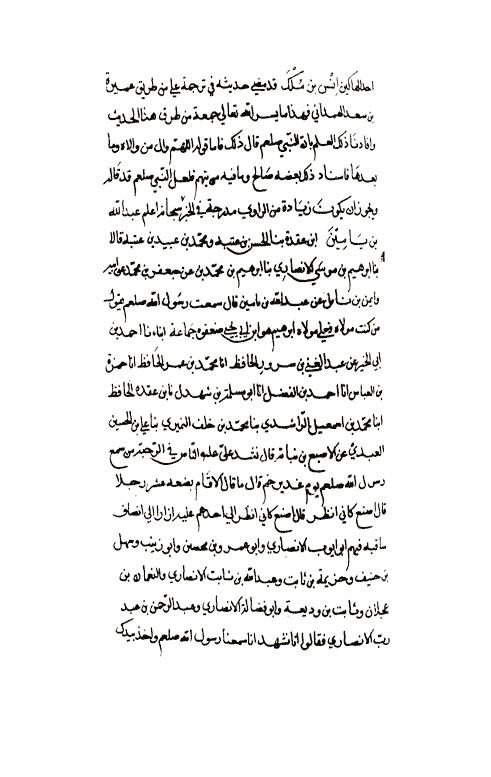 احد الهالكين انس بن ملك قد مضى حديثه في ترجمة علي من طريق عميرة
بن سعد الهمداني فهذا ما يسر الله تعالى جمعه من طرق هذا الحديث
وافادنا ذلك العلم بان النبي صلعم قال ذلك فاما قوله اللهم وال من والاه وما
بعدها فاسناد ذلك بعضه صالح وما فيه متهم فلعل النبي صلعم قد قاله
ويجوز ان يكون زيادة من الراوي مدرجة في الخبر عبد الله
بن ياميين ابن عقدة بنا الحسن بن عتبه ومحمد بن عبيد بن عتبة قالا
بنا ابرهيم بن موسى الانصاري بنا ابرهيم بن محمد بن عن جعفر بن محمد عن ابيه
وايمن بن نابل عن عبد الله بن يامين قال سمعت رسول الله صلعم يقول
من كنت مولاه فعلي مولاه ابرهيم هو ابن ابي يحيى ضعفوه جماعة انا احمد بن
ابي الخير عن عبد الغني بن سرور الحافظ انا محمد بن عمر الحافظ انا حمزة
بن العباس انا احمد بن الفضل انا ابو مسلم بن شهدل نا بن عقدة الحافظ
انا محمد بن اسمعيل الراشدي بنا محمد بن خلف النميري بنا علي بن الحسين
العبدي عن الاصبغ بن نباتة قال نشد علي عليه الناس في الرحبة من سمع
رسول الله صلعم يوم غدير خم قال ما قال الا قام بضعه عشر رجلا
قال اصبغ كاني انظر قال اصبغ كاني انظر الى احدهم عليه ازار الى انصاف
ساقيه فيهم ابو ايوب الانصاري وابو عمرو بن محصن وابو زينب وسهل
بن حنيف وخزيمة بن ثابت وعبد الله بن ثابت الانصاري والنعمان بن
عجلان وثابت بن وديعة وابو فضالة الانصاري وعبد الرحمن بن عبد
رب الانصاري فقالوا انا نشهد انا سمعنا رسول الله صلعم واخذ بيدك